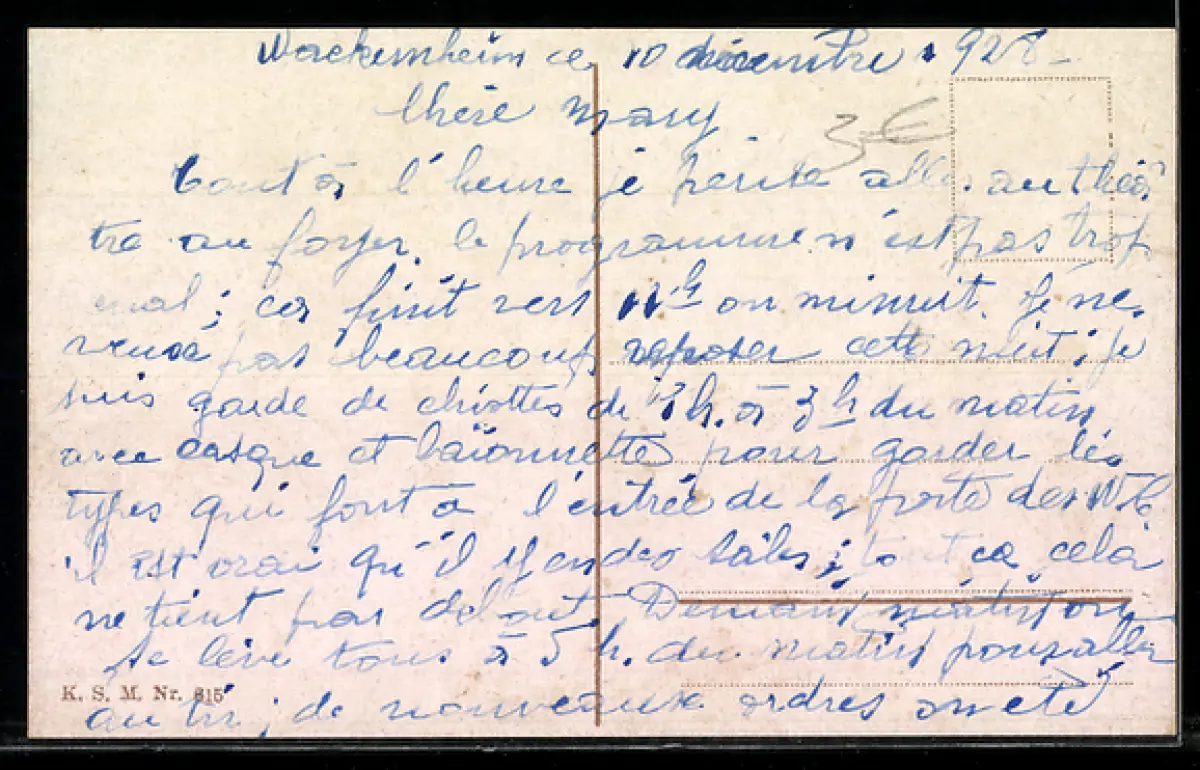 Wackernheim ce 10 décembre 1928
Chère Mary
Tout à l'heure je pense aller au théâ
tre au foyer, le programme n'est pas trop
mal; ça finit vers 11h ou minuit. Je ne
pas beaucoup reposer cette nuit; je
suis garde de chiottes de h. à 3h du matin
avec casque et baïonnette pour garder les
types qui font à l'entrée de la porte des W.C.
il est vrai qu'il y en des sales; tout ce cela
ne tient pas debout. Demain matin on
se lève tous à 5 h. du matin pour aller
au tir; de nouveaux ordres ont été
3€
K. S. M. Nr. 615